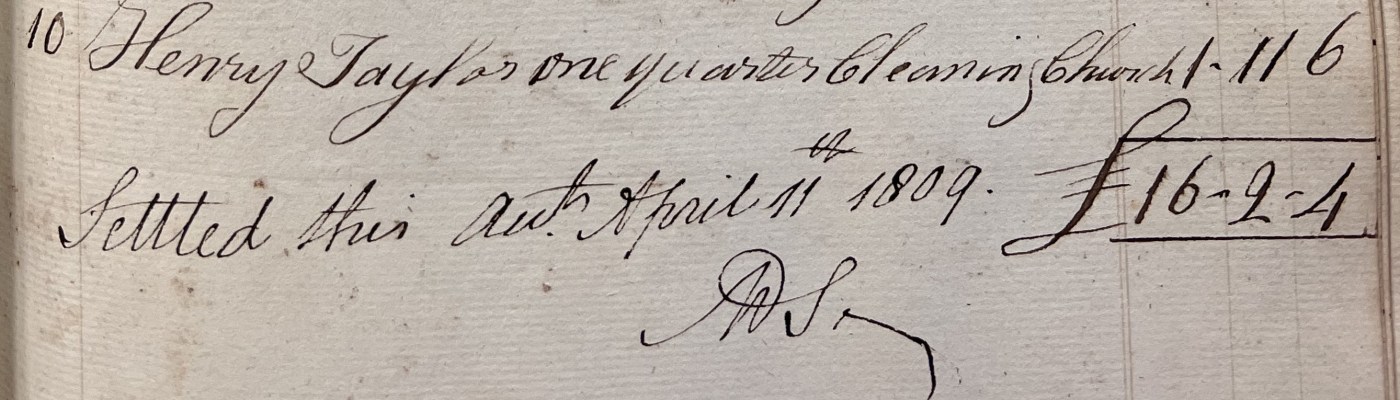 10 Henry Taylor one quarter Cleaning Church 1-11 6
Settled this Acct. April 11th 1809. £16-2-4